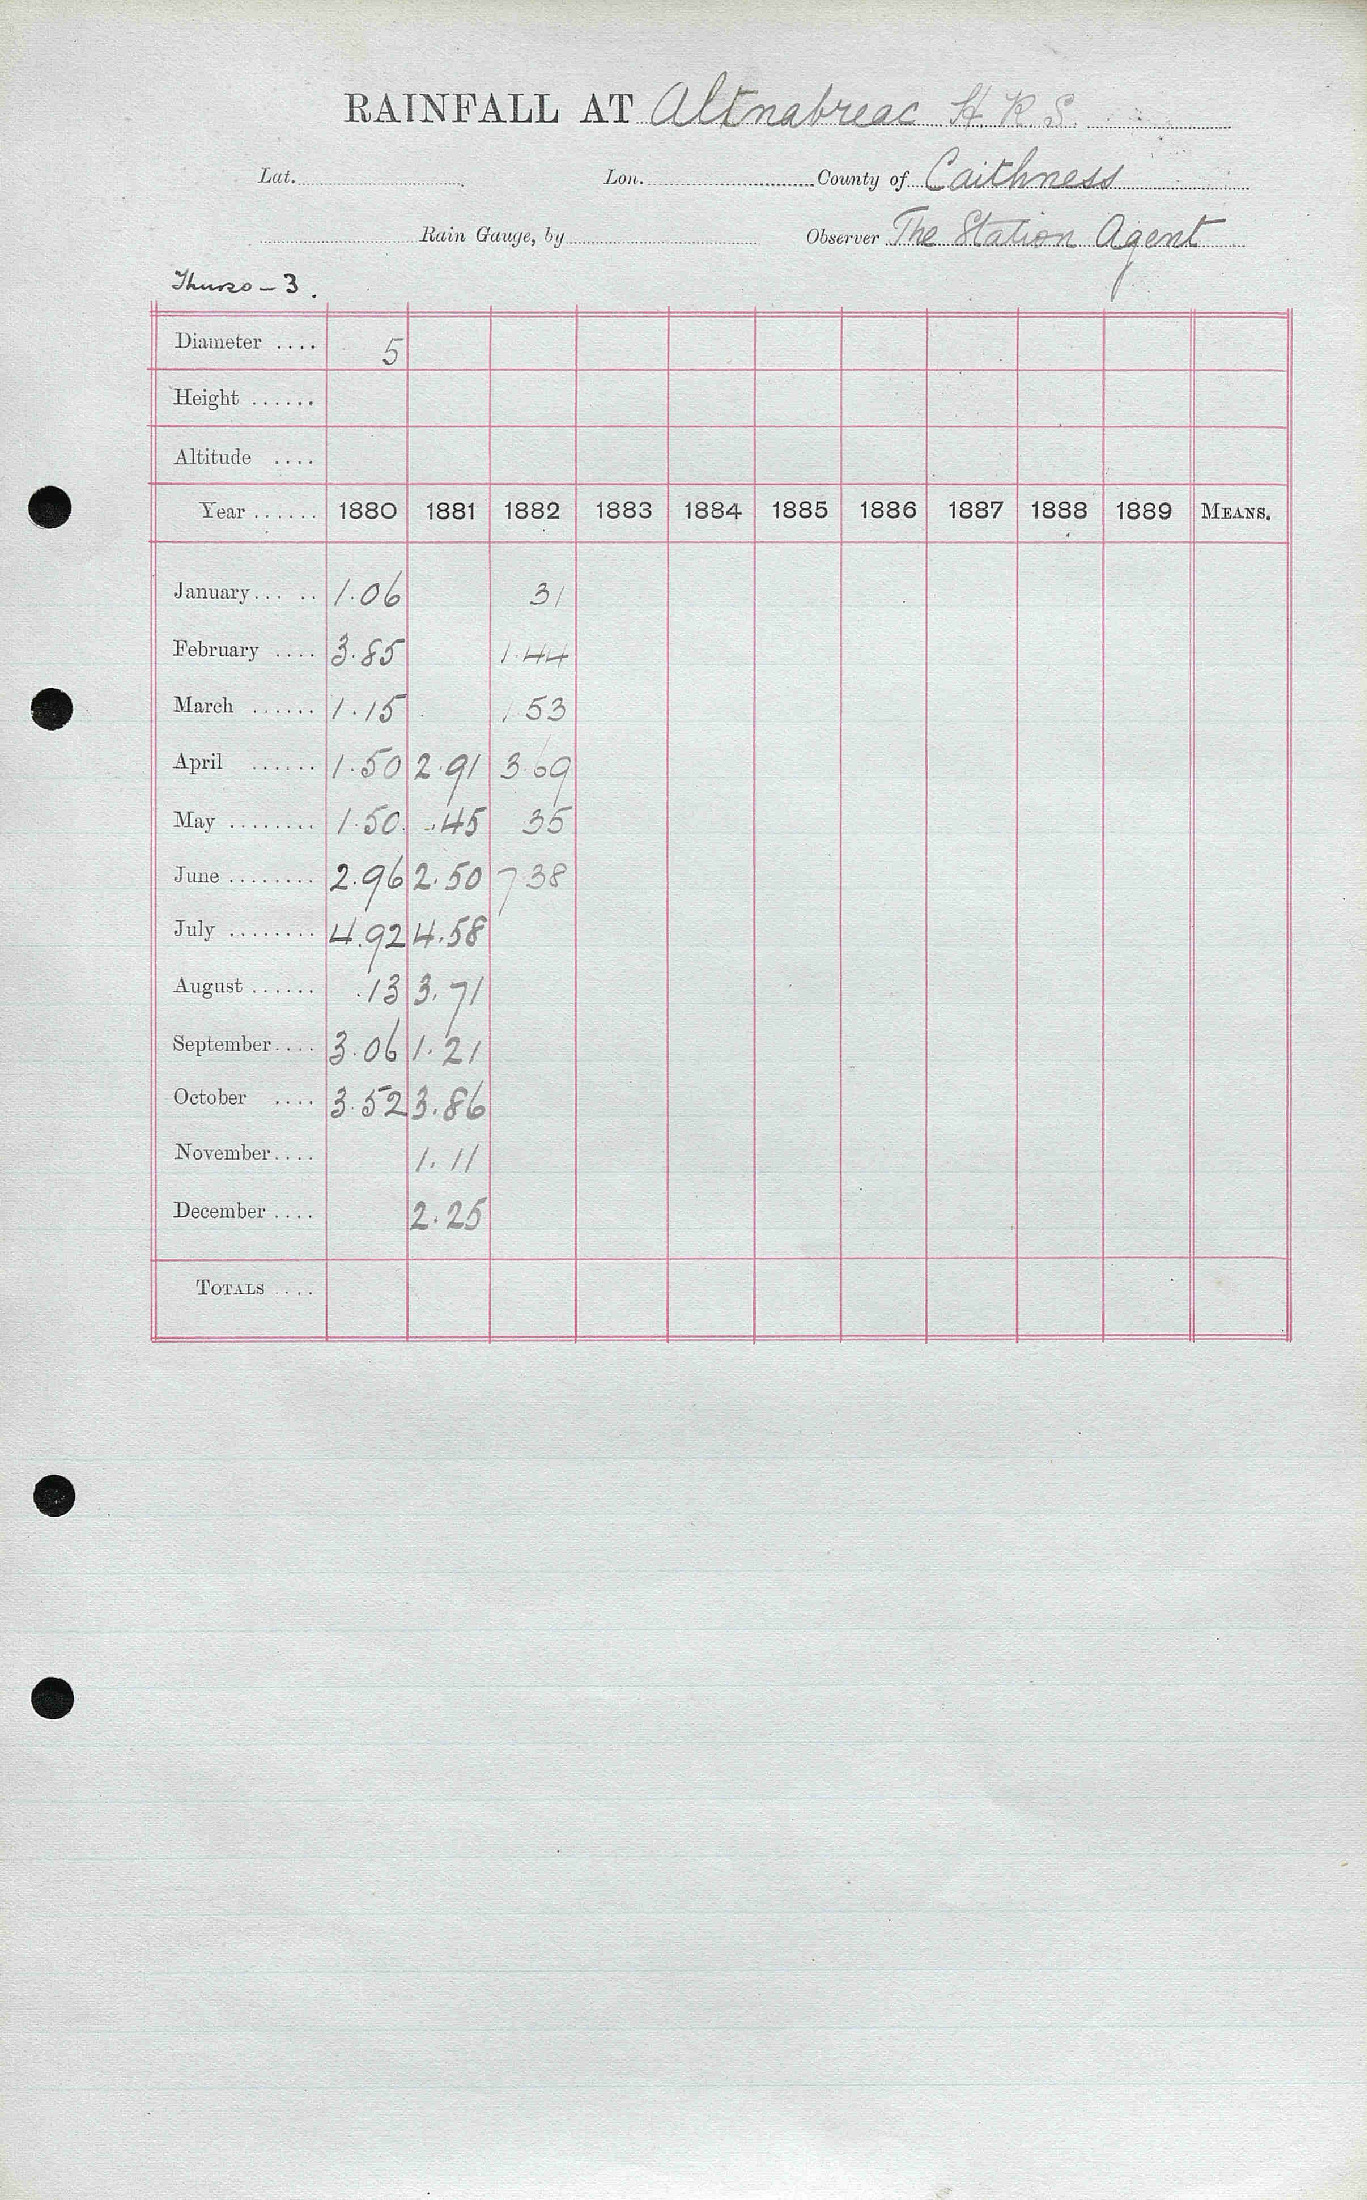 RAINFALL AT Altnabreac H. R. S.
Lat. Lon. County of Caithness
Rain Gauge, by Observer The Station Agent
Thurso - 3.
Diameter .... 5
Height ......
Altitude ....
Year ...... 1880 1881 1882 1883 1884 1885 1886 1887 1888 1889 MEANS.
January... .. 1.06 31
February .... 3.85 1.44
March ...... 1.15 1 53
April ...... 1.50 2.91 3.69
May ........ 1.50 .45 35
June ........ 2.96 2.50 7 38
July ........ 4.92 4.58
August ...... .13 3.71
September.... 3.06 1.21
October .... 3.52 3.86
November.... 1.11
December .... 2.25
TOTALS ....